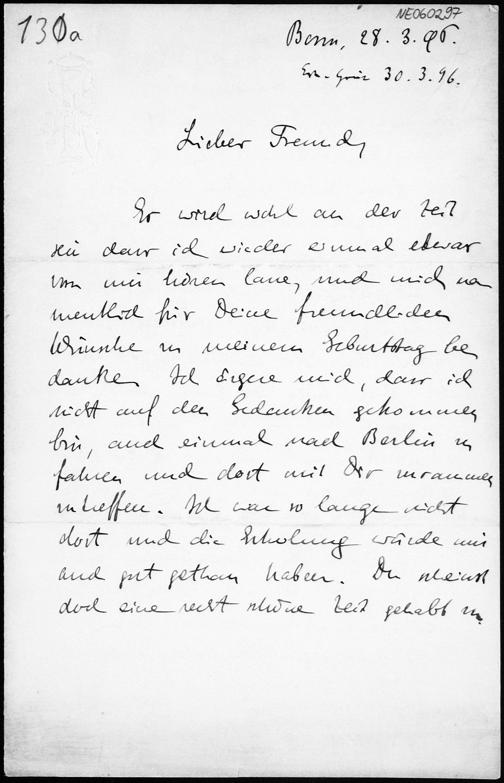 130a
NE060297
Bonn, 28. 3. 96.
30. 3. 96.
Lieber Freund,
Es wird wohl an der Zeit
sein dass ich wieder einmal etwas
von mir hören lasse, und mich na
mentlich für Deine freundlichen
Wünsche zu meinem Geburtstag be
danke. Ich ärgere mich, dass ich
nicht auf den Gedanken gekommen
bin, auch einmal nach Berlin zu
fahren und dort mit Dir zusammen
zutreffen. Ich war so lange nicht
dort und die Erholung würde mir
auch gut gethan haben. Du scheinst
doch eine recht schöne Zeit gehabt zu